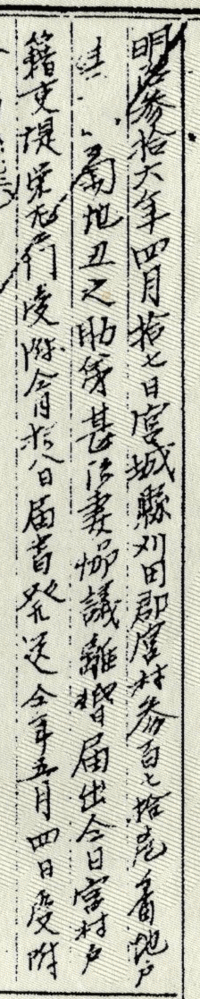 明治参拾六年四月拾七日宮城縣刈田郡宮村参百七拾壱番地戸
主菊地丑之助弟甚治妻協議離婚届出仝日宮村戸
籍吏堤栄五郎受附仝月拾八日届書発送仝年五月四日受附